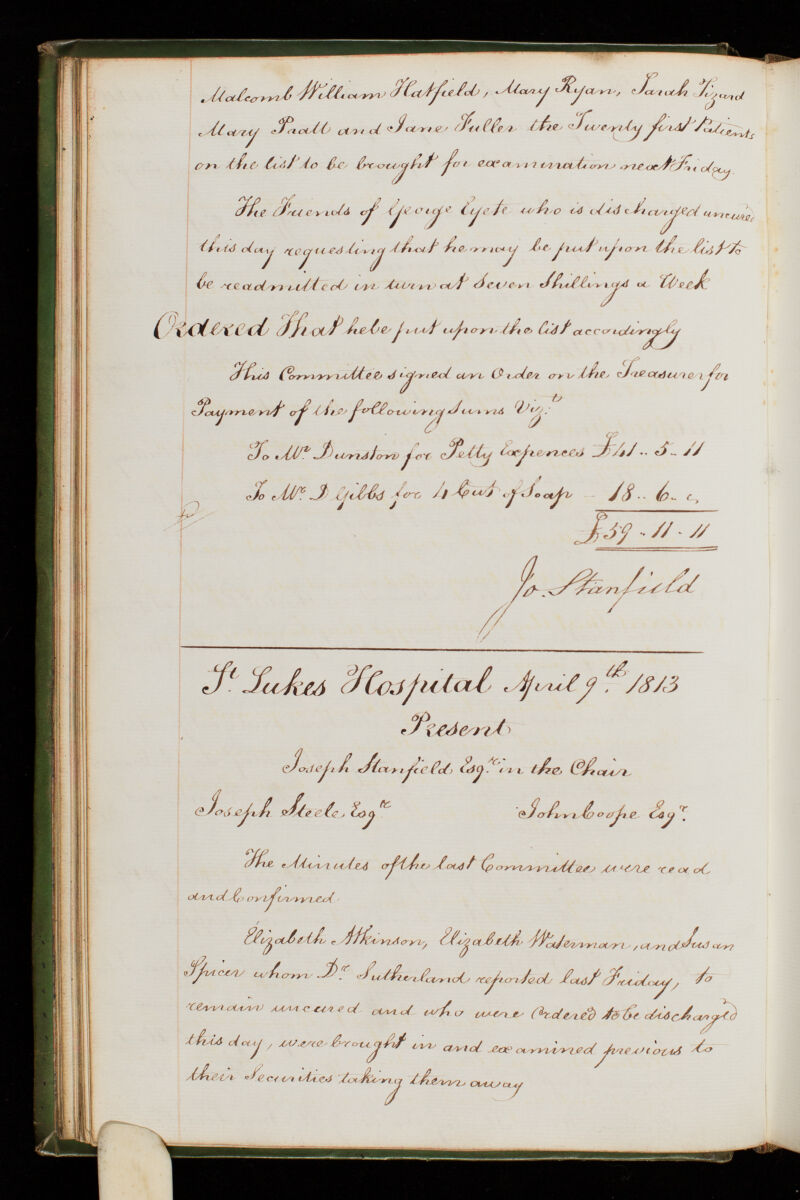 Malcomb William Hatfield, Mary Ryan, Sarah Tizard
Mary Pratt and Jane Fuller the Twenty first Patients
on the list to be brought for examination next Friday.
The Friends of George Eyete who is discharged uncured
this day requesting that he may be put upon the list to
be readmitted in turn at Seven Shillings a Week
Ordered That he be put upon the list accordingly
This Committee signed an Order on the Treasurer for
Payment of the following Sums Viz.t
To Mr. Dunston for Petty Expences £41 .. 5 - 11
To Mr. D Gibbs for 4 Cwt of Soap - 18 .. 6 -
£59 - 11 - 11
Jo. Stanfield
St. Lukes Hospital April 9th. 1813
Present
Joseph Stanfield Esqre. in the Chair
Joseph Steele Esqre
John Coope Esqr.
The Minutes of the last Committee were read
and Confirmed
Elizabeth Atkinson, Elizabeth Waterman, and Susan
Spicer whom Dr. Sutherland reported last Friday, to
remain uncured and who were Ordered to be discharged
this day, were brought in and examined previous to
their Securities taking them away